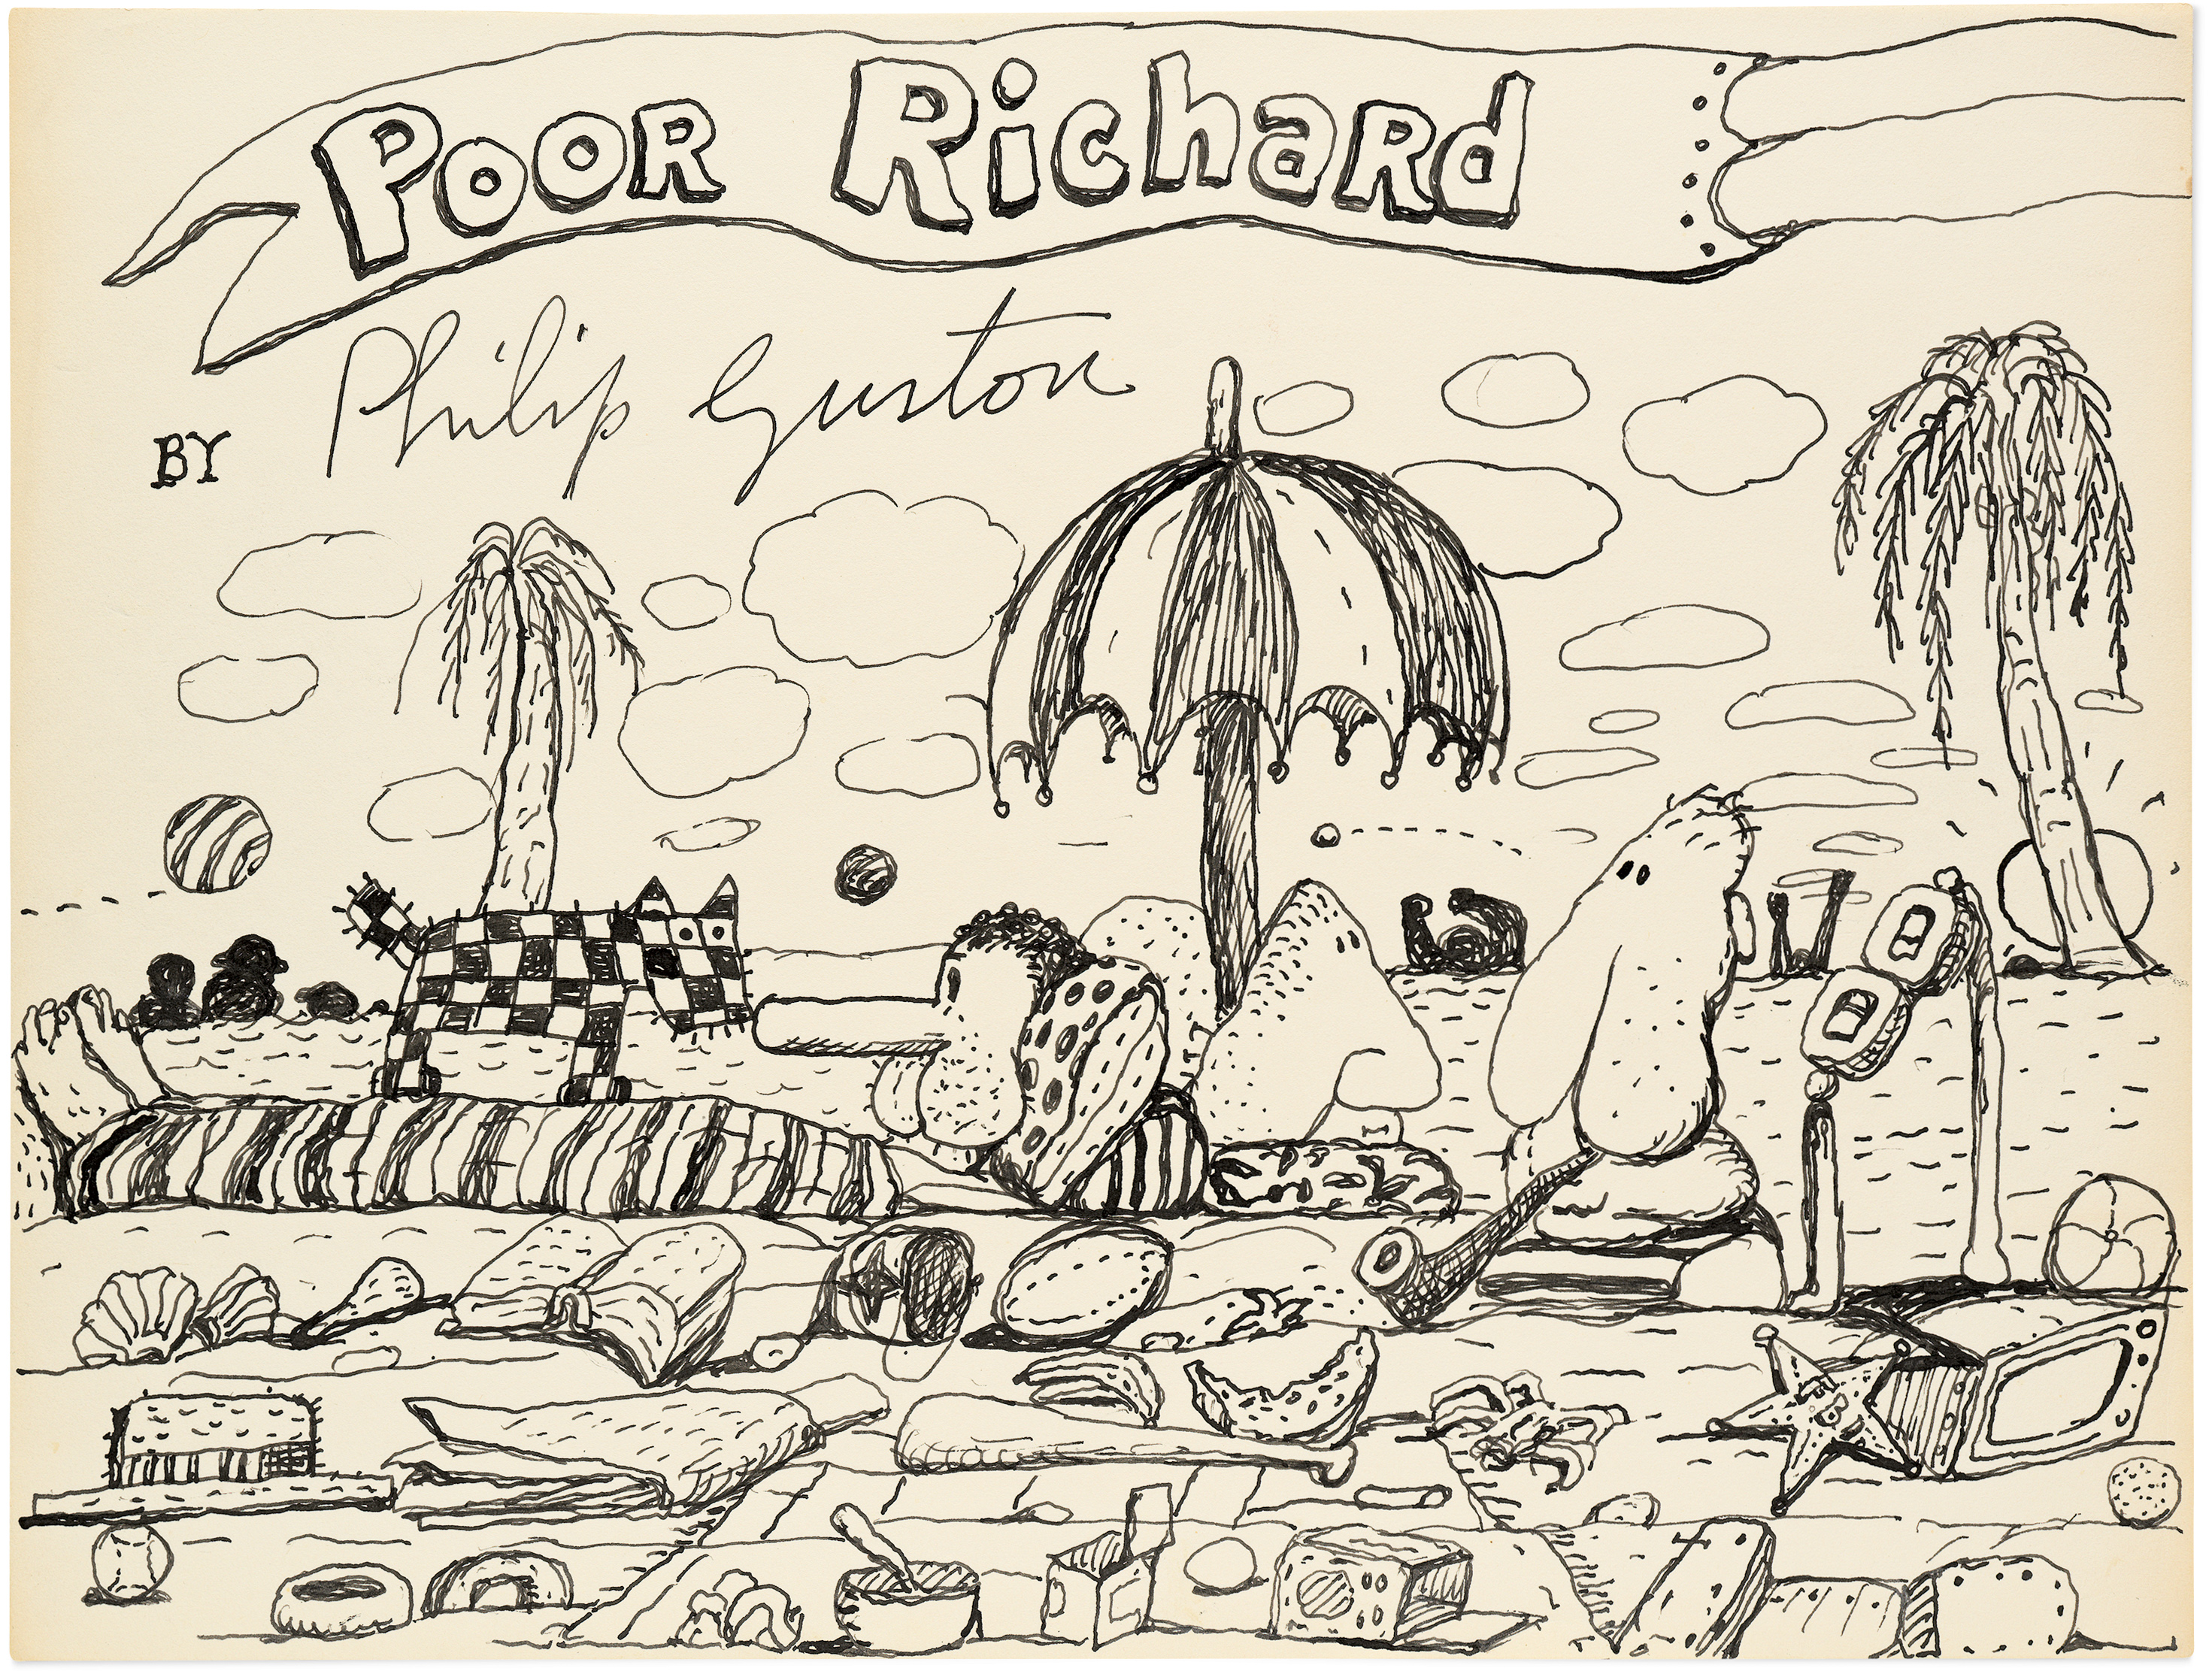 Poor Richard
BY Philip Guston